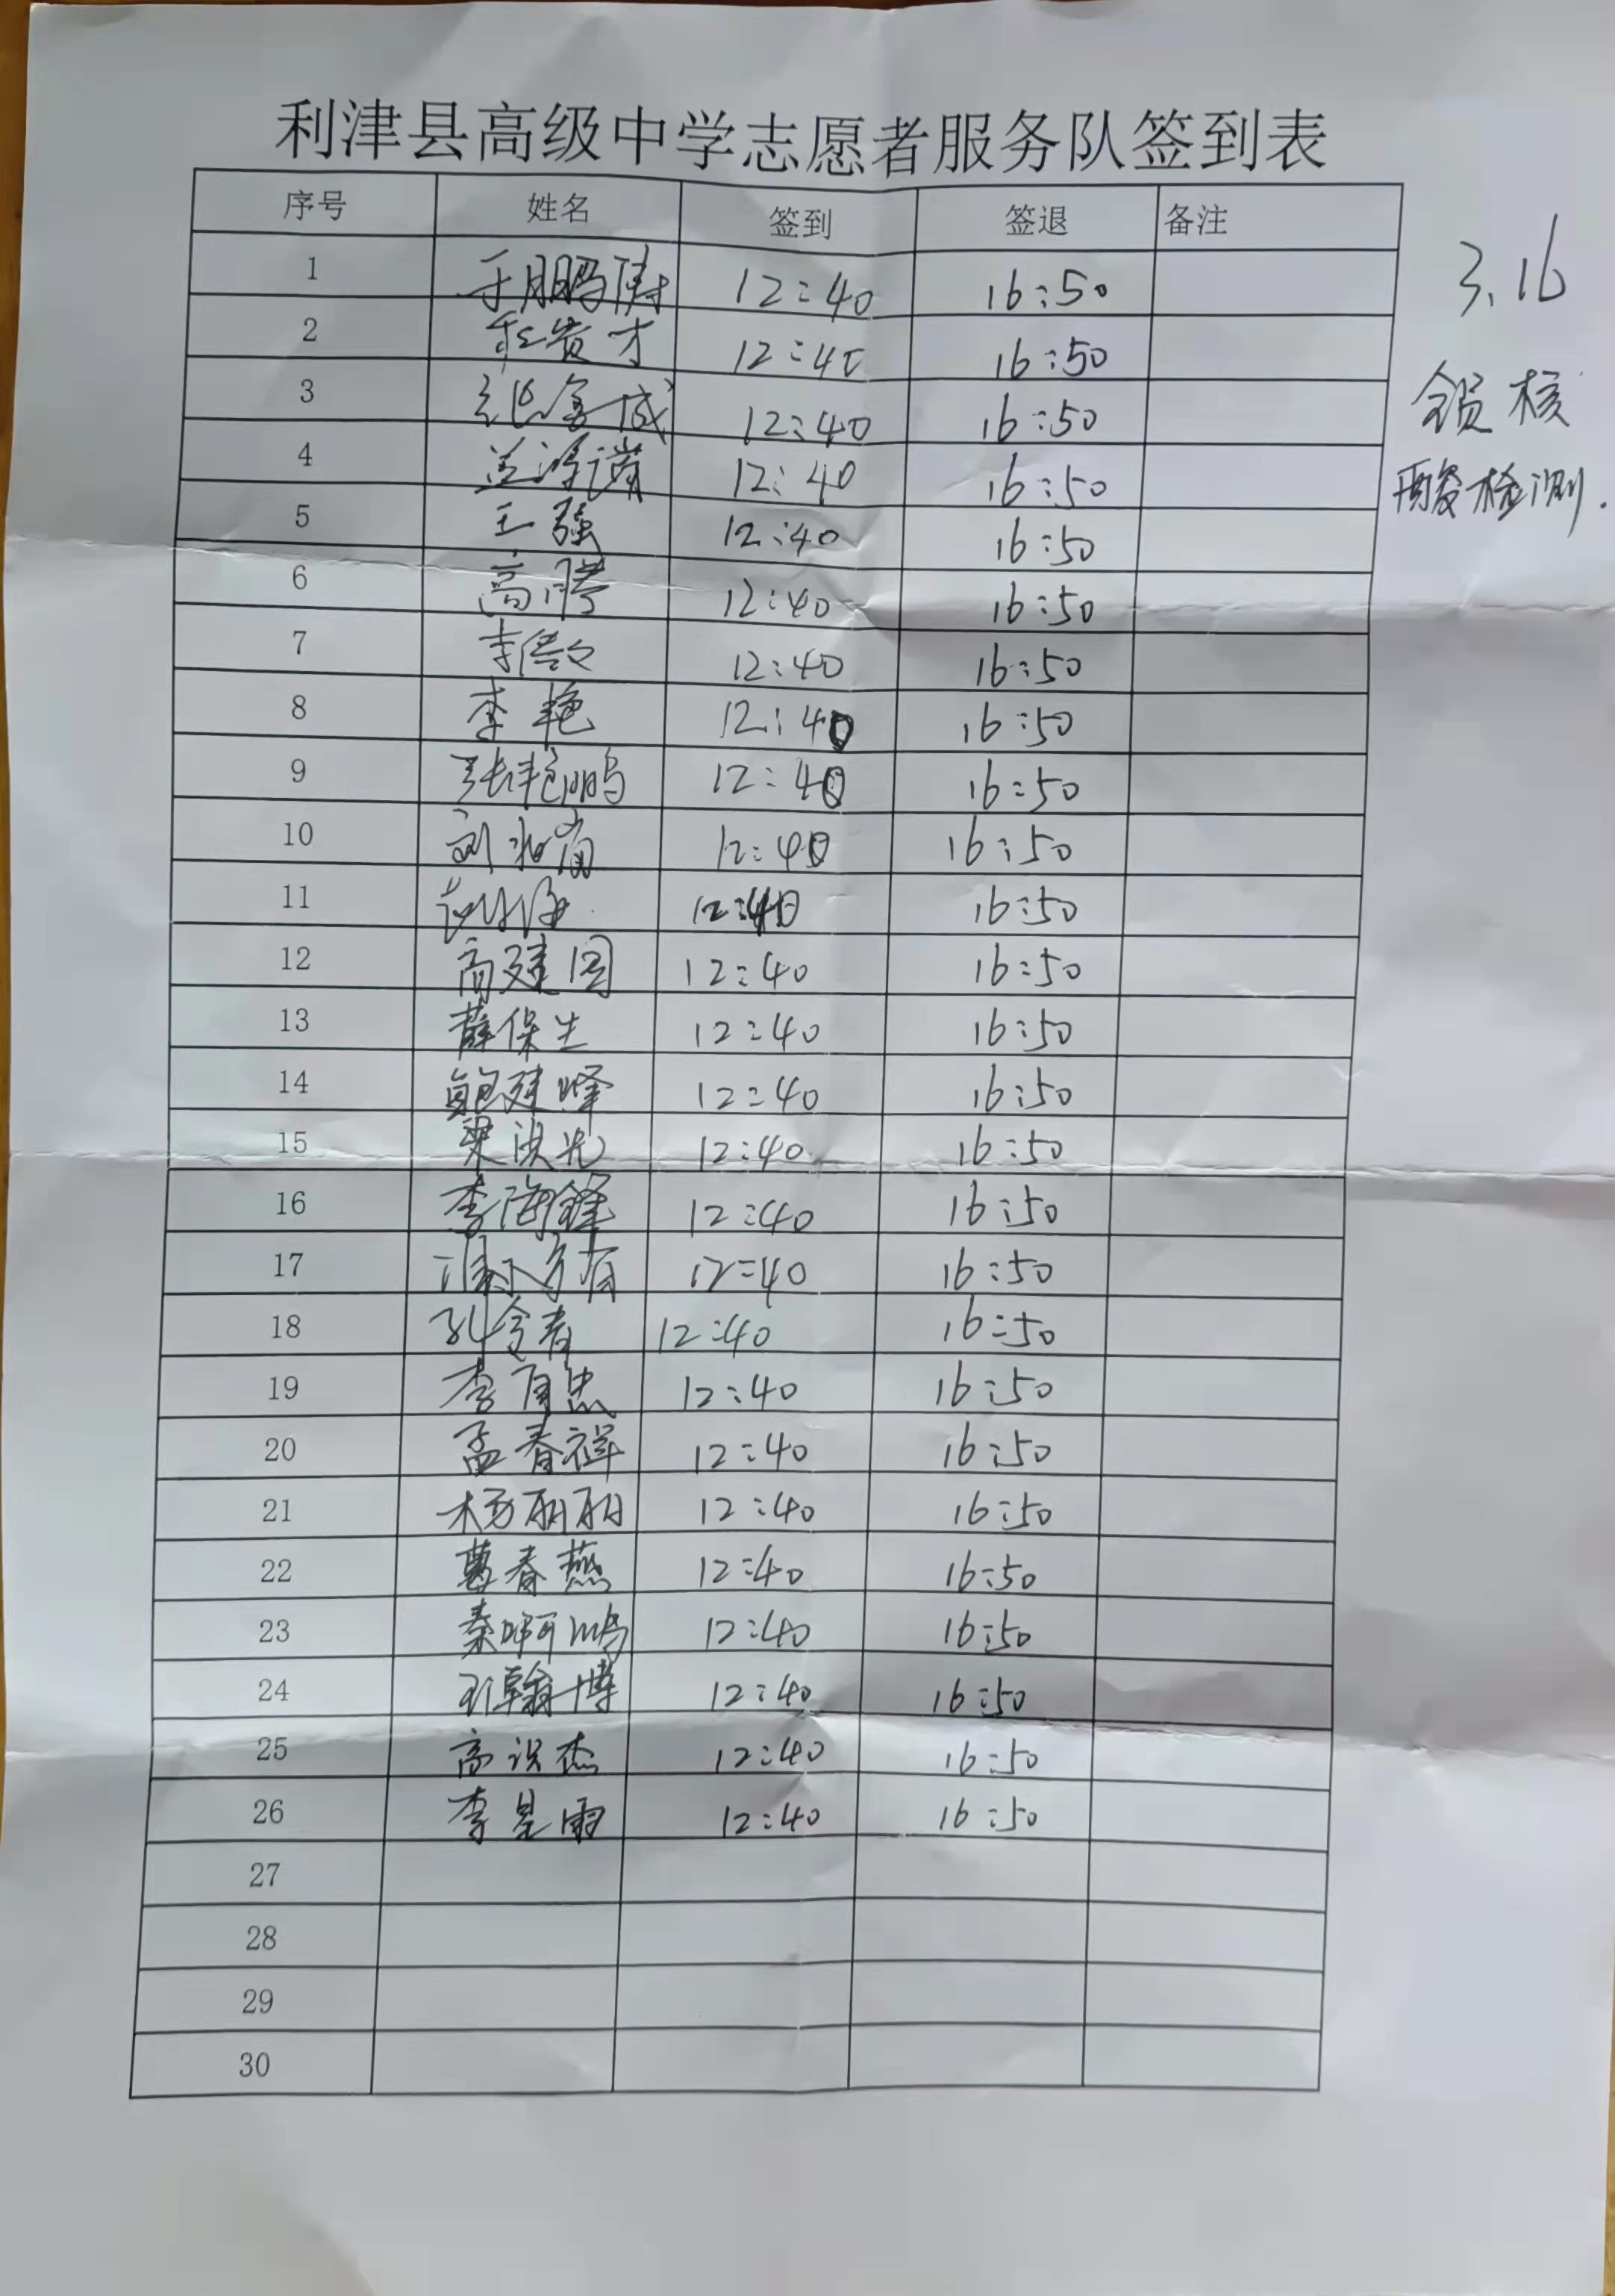 利津县高级中学志愿者服务队签到表
序号 姓名 签到 签退 备注
1 于鹏博 12:40 16:50
2 贵才 12:40 16:50
3 12:40 16:50
4 12:40 16:50
5 王强 12:40 16:50
6 高腾 12:40 16:50
7 12:40 16:50
8 李艳 12:40 16:50
9 张艳鹏 12:40 16:50
10 12:40 16:50
11 12:40 16:50
12 高建国 12:40 16:50
13 薛保生 12:40 16:50
14 鲍建峰 12:40 16:50
15 梁洪光 12:40 16:50
16 李海锋 12:40 16:50
17 12:40 16:50
18 孔令春 12:40 16:50
19 李有忠 12:40 16:50
20 孟春祥 12:40 16:50
21 杨丽丽 12:40 16:50
22 葛春燕 12:40 16:50
23 秦啊鹏 12:40 16:50
24 翰博 12:40 16:50
25 高洪杰 12:40 16:50
26 李星雨 12:40 16:50
27
28
29
30
3.16
全员核
酸检测.